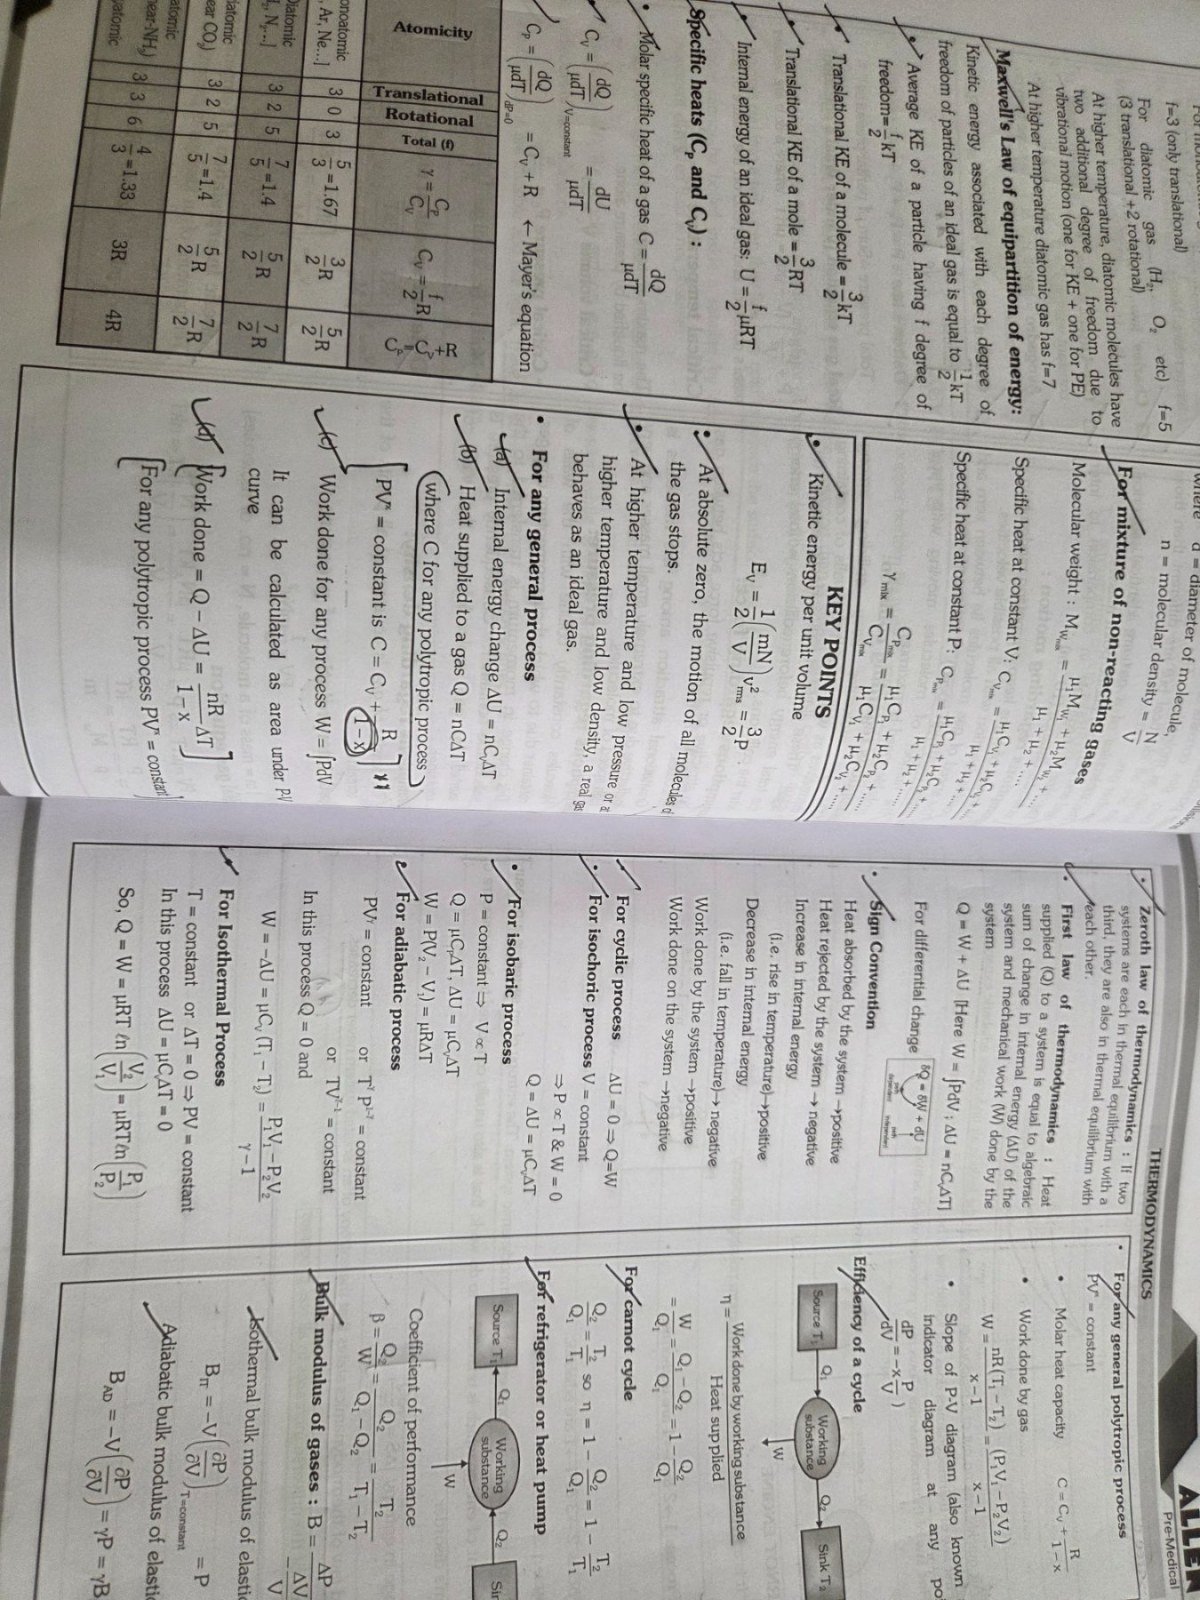 f=3 (only translational)
For diatomic gas (H₂, O₂ etc) f=5
(3 translational +2 rotational)
At higher temperature, diatomic molecules have
two additional degree of freedom due to
vibrational motion (one for KE + one for PE)
At higher temperature diatomic gas has f=7
Maxwell's Law of equipartition of energy:
Kinetic energy associated with each degree of
freedom of particles of an ideal gas is equal to 1/2 kT
• Average KE of a particle having f degree of
freedom= f/2 kT
• Translational KE of a molecule = 3/2 kT
• Translational KE of a mole = 3/2 RT
• Internal energy of an ideal gas: U = f/2 μRT
Specific heats (Cp and Cv) :
• Molar specific heat of a gas C = dQ/μdT
• Cv = (dQ/μdT)V=constant = dU/μdT
• Cp = (dQ/μdT)dP=0 = Cv + R ← Mayer's equation
Atomicity Translational Rotational Total (f) γ = Cp/Cv Cv = f/2 R Cp=Cv+R
Ar, Ne..] 3 0 3 5/3 =1.67 3/2 R 5/2 R
3 2 5 7/5 =1.4 5/2 R 7/2 R
CO₂) 3 2 5 7/5 =1.4 5/2 R 7/2 R
NH₃) 3 3 6 4/3 =1.33 3R 4R
d = diameter of molecule,
n = molecular density = N/V
For mixture of non-reacting gases
Molecular weight : MWmix = μ₁MW₁ + μ₂MW₂ + .... / μ₁ + μ₂ + ....
Specific heat at constant V: CVmix = μ₁CV₁ + μ₂CV₂ + .... / μ₁ + μ₂ + ....
Specific heat at constant P: CPmix = μ₁CP₁ + μ₂CP₂ + .... / μ₁ + μ₂ + ....
γmix = CPmix/CVmix = μ₁CP₁ + μ₂CP₂ + ..... / μ₁CV₁ + μ₂CV₂ + .....
KEY POINTS
• Kinetic energy per unit volume
EV = 1/2 (mN/V) v²rms = 3/2 P
• At absolute zero, the motion of all molecules of
the gas stops.
• At higher temperature and low pressure or at
higher temperature and low density, a real gas
behaves as an ideal gas.
• For any general process
(a) Internal energy change ΔU = nCvΔT
(b) Heat supplied to a gas Q = nCΔT
where C for any polytropic process
PVˣ = constant is C = Cv + R/1-x
(c) Work done for any process W = ∫PdV
It can be calculated as area under P-V
curve
(d) Work done = Q – ΔU = nR/1-x ΔT
For any polytropic process PVˣ = constant
ALLEN
Pre-Medical
THERMODYNAMICS
• Zeroth law of thermodynamics : If two
systems are each in thermal equilibrium with a
third, they are also in thermal equilibrium with
each other.
• First law of thermodynamics : Heat
supplied (Q) to a system is equal to algebraic
sum of change in internal energy (ΔU) of the
system and mechanical work (W) done by the
system
Q = W + ΔU [Here W = ∫PdV ; ΔU = nCvΔT]
For differential change δQ = δW + dU
• Sign Convention
Heat absorbed by the system →positive
Heat rejected by the system → negative
Increase in internal energy
(i.e. rise in temperature)→positive
Decrease in internal energy
(i.e. fall in temperature)→ negative
Work done by the system →positive
Work done on the system →negative
• For cyclic process ΔU = 0 ⇒ Q=W
• For isochoric process V = constant
⇒ P ∝ T & W = 0
Q = ΔU = μCvΔT
• For isobaric process
P = constant ⇒ V ∝ T
Q = μCpΔT, ΔU = μCvΔT
W = P(V₂ – V₁) = μRΔT
• For adiabatic process
PVᵞ = constant or TᵞP¹⁻ᵞ = constant
or TVᵞ⁻¹ = constant
In this process Q = 0 and
W = –ΔU = μCv (T₁ – T₂) = P₁V₁ – P₂V₂ / γ – 1
• For Isothermal Process
T = constant or ΔT = 0 ⇒ PV = constant
In this process ΔU = μCvΔT = 0
So, Q = W = μRT ℓn (V₂/V₁) = μRT ℓn (P₁/P₂)
• For any general polytropic process
PVˣ = constant
• Molar heat capacity C = Cv + R/1-x
• Work done by gas
W = nR(T₁ – T₂)/x – 1 = (P₁V₁ – P₂V₂)/x – 1
• Slope of P-V diagram (also known
indicator diagram at any
dP/dV = –x P/V )
Efficiency of a cycle
Source T₁ Q₁ Working substance Q₂ Sink T₂
W
η = Work done by working substance / Heat supplied
= W/Q₁ = Q₁ – Q₂ / Q₁ = 1 – Q₂/Q₁
For carnot cycle
Q₂/Q₁ = T₂/T₁ so η = 1 – Q₂/Q₁ = 1 – T₂/T₁
For refrigerator or heat pump
Source T₁ Q₁ Working substance Q₂
W
Coefficient of performance
β = Q₂/W = Q₂/Q₁ – Q₂ = T₂/T₁ – T₂
Bulk modulus of gases : B = ΔP / –ΔV/V
Isothermal bulk modulus of
BIT = –V (∂P/∂V)T=constant = P
Adiabatic bulk modulus of
BAD = –V (∂P/∂V) = γP = γB